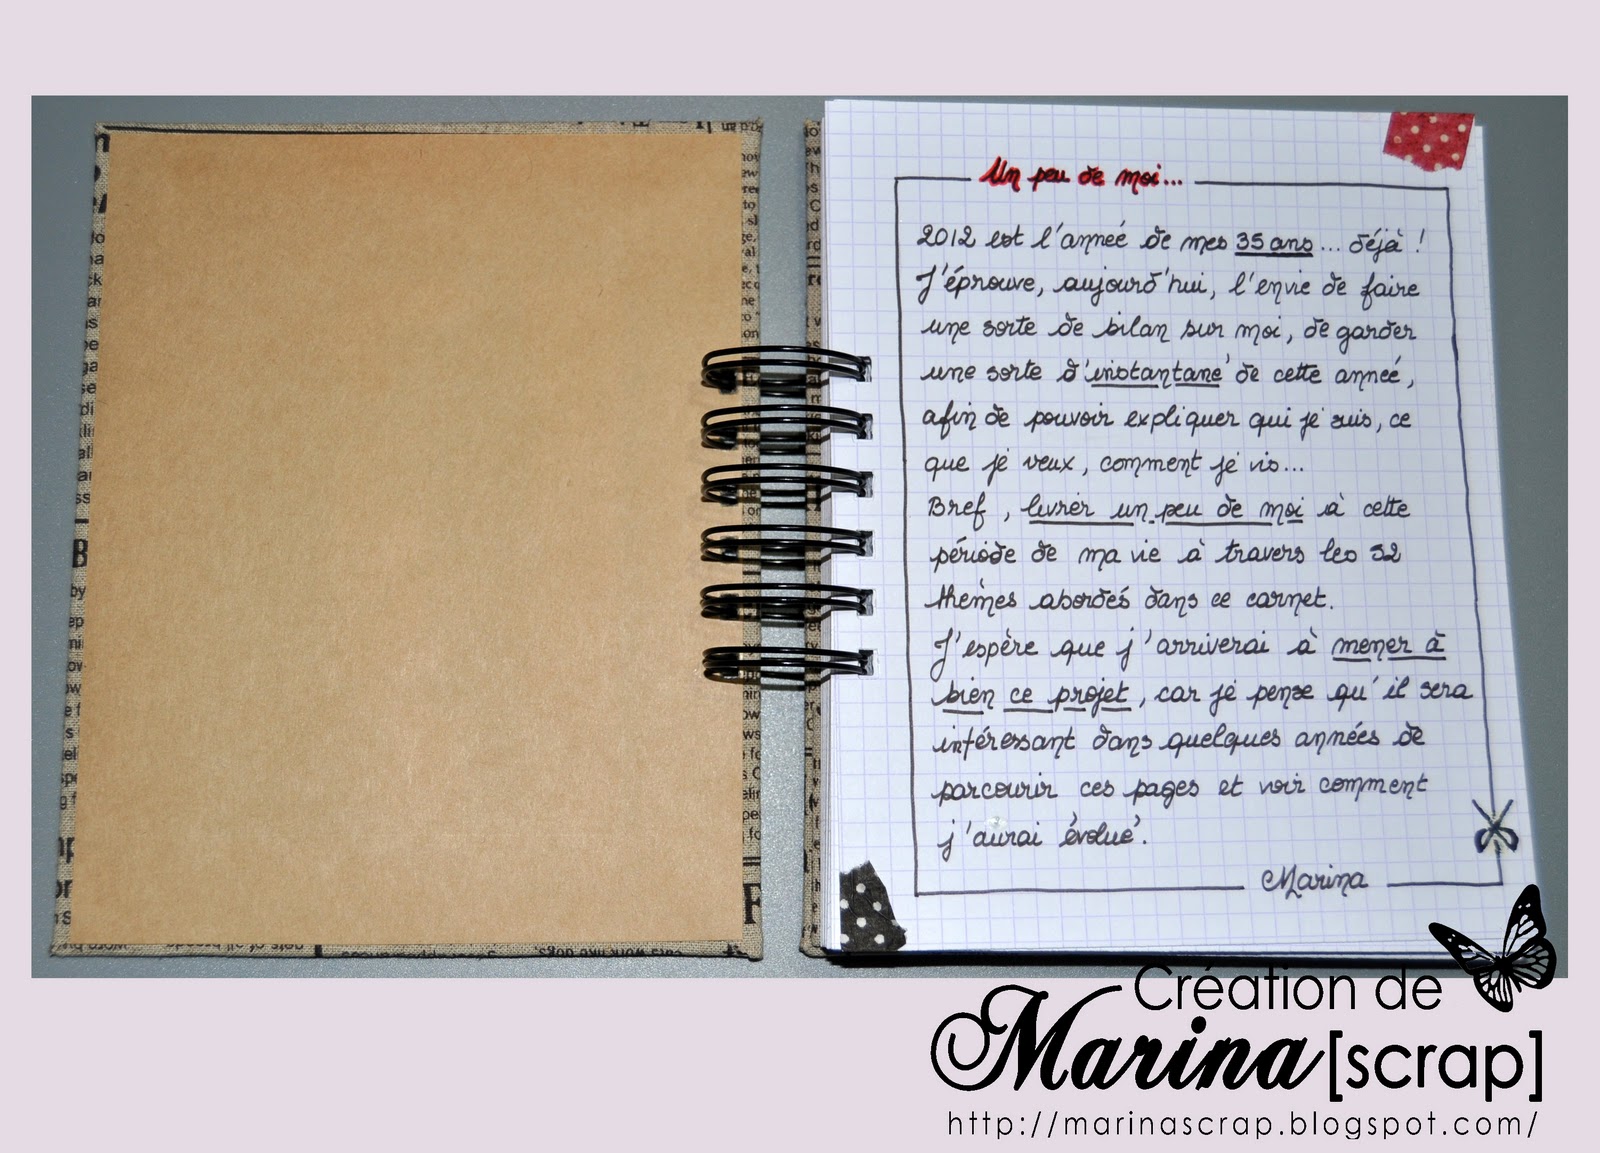 Un peu de moi...
2012 est l'année de mes 35 ans... déjà !
J'éprouve, aujourd'hui, l'envie de faire
une sorte de bilan sur moi, de garder
une sorte d'instantané de cette année,
afin de pouvoir expliquer qui je suis, ce
que je veux, comment je vis...
Bref, livrer un peu de moi à cette
période de ma vie à travers les 52
thèmes abordés dans ce carnet.
J'espère que j'arriverai à mener à
bien ce projet, car je pense qu'il sera
intéressant dans quelques années de
parcourir ces pages et voir comment
j'aurai évolué.
Marina
Création de
Marina [scrap]
http://marinascrap.blogspot.com/